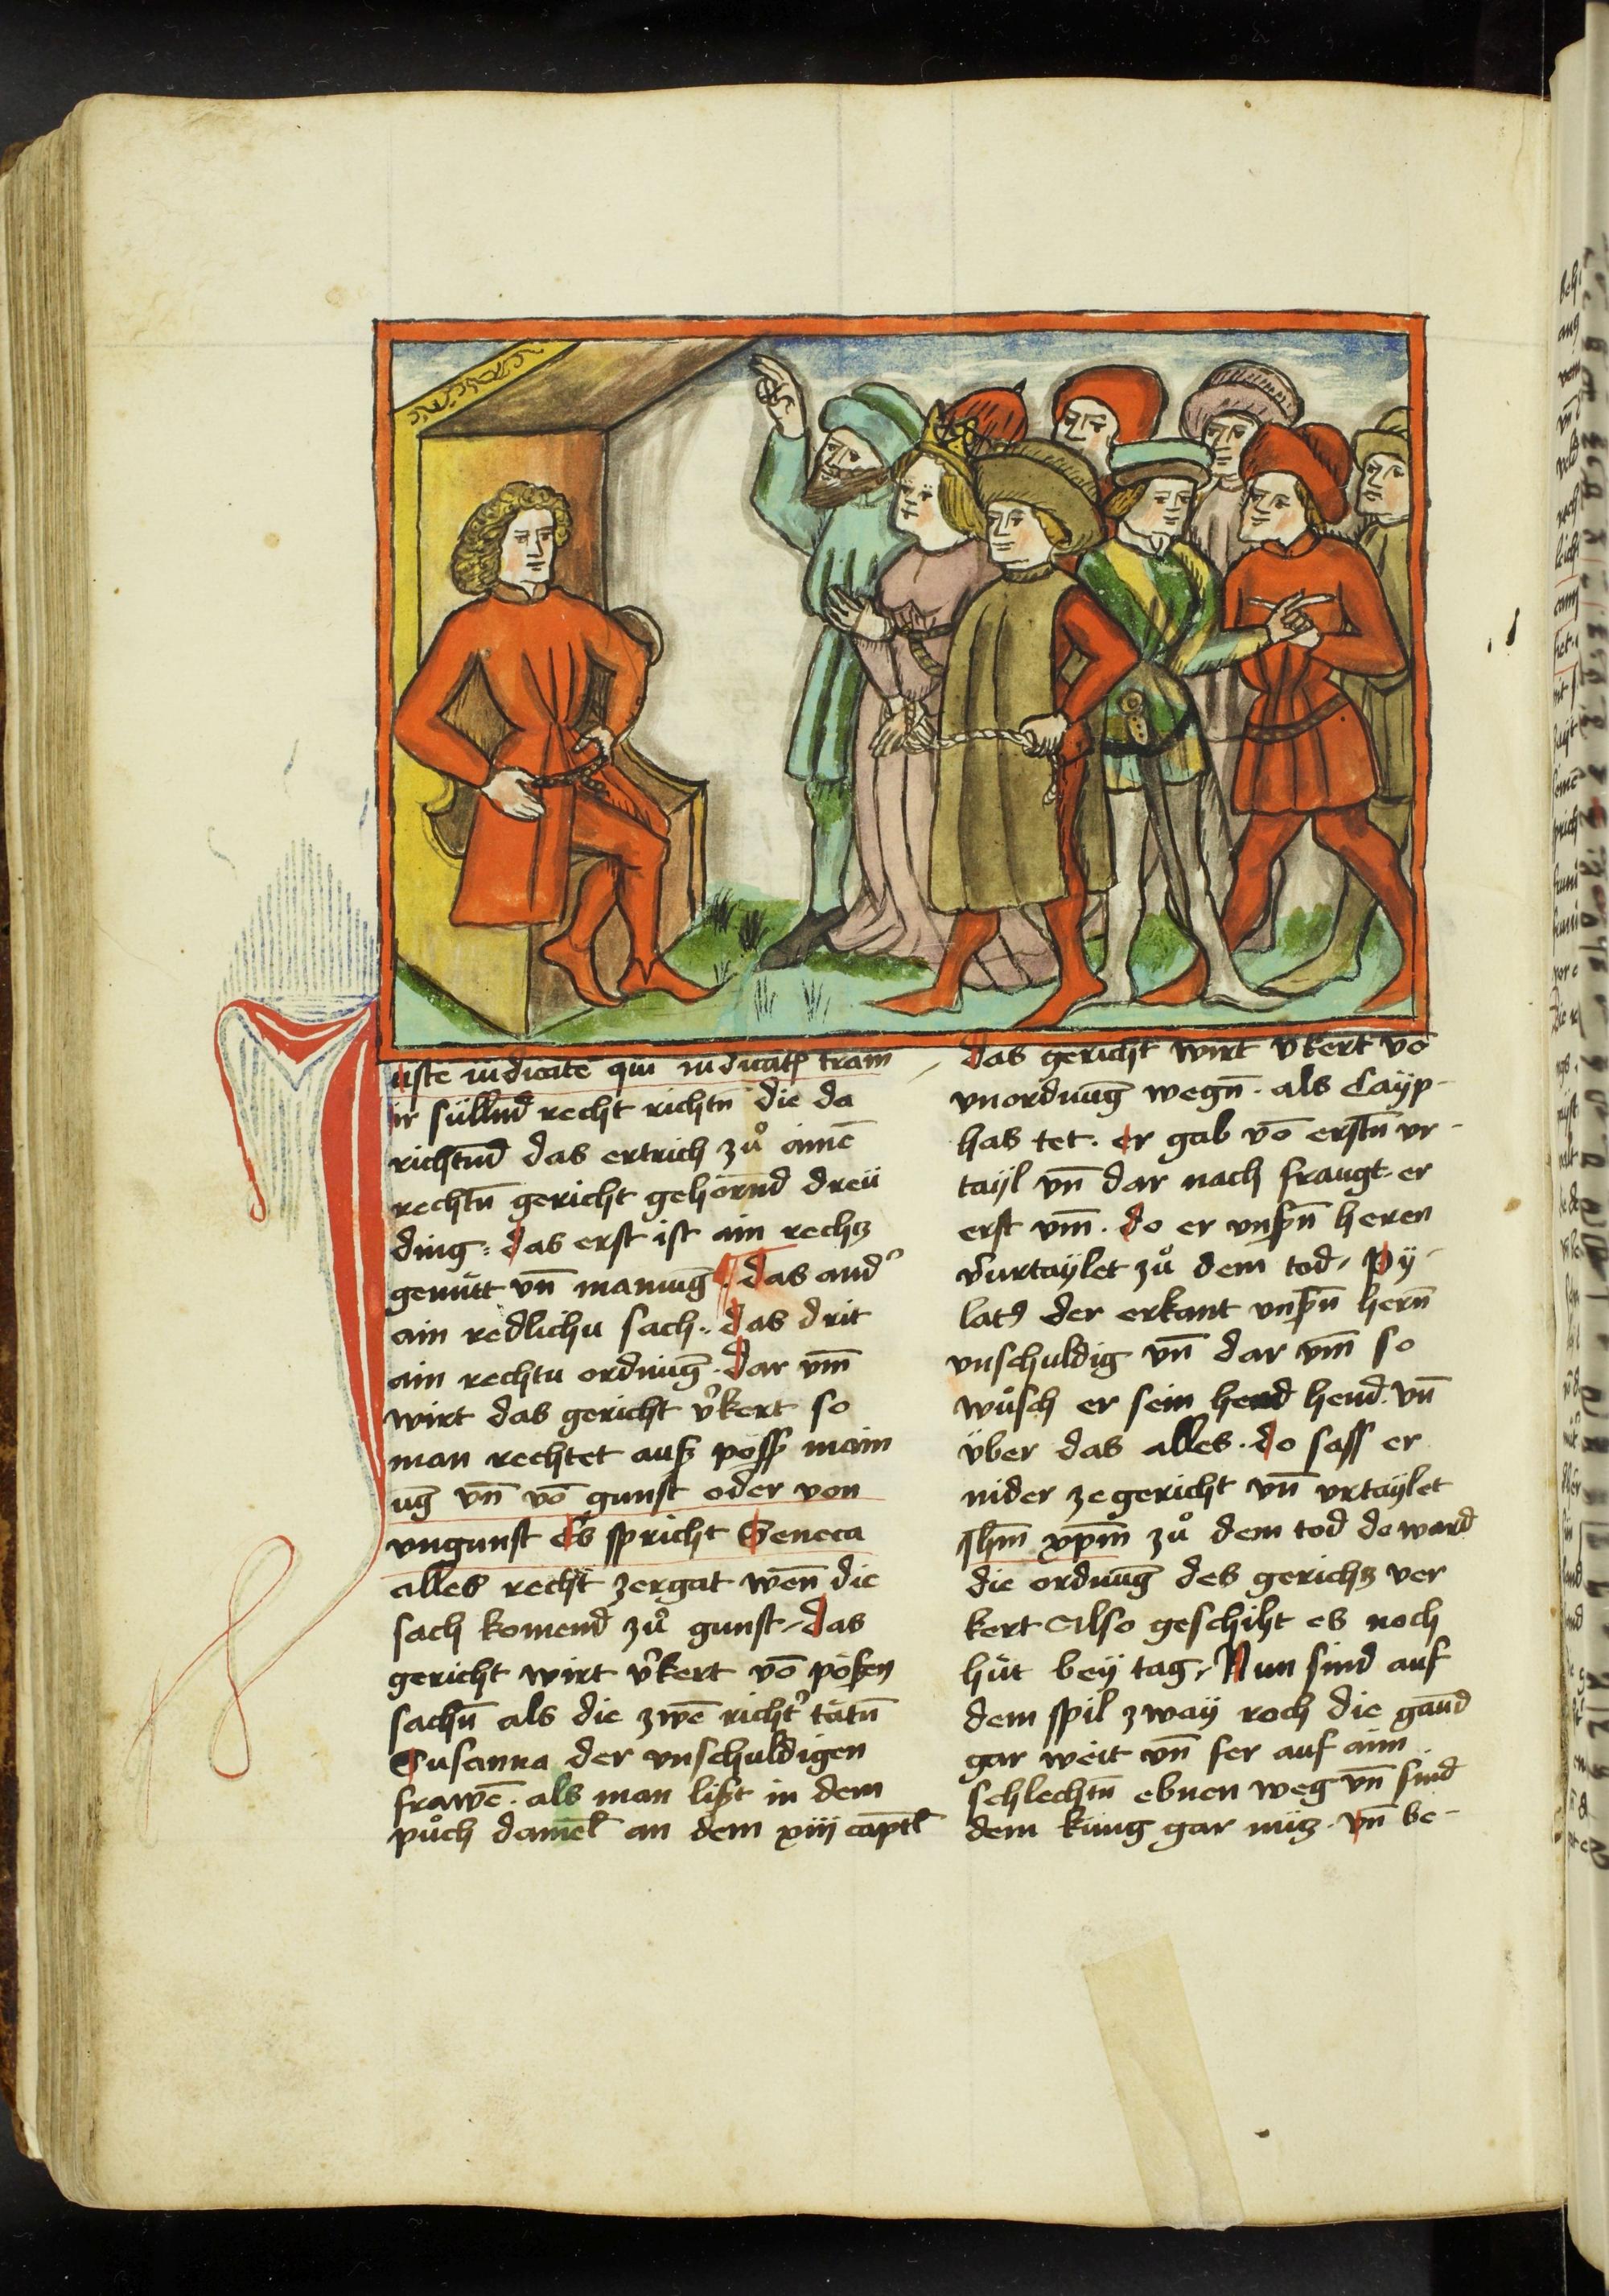 Juste iudicate qui iudicatꝭ tram
ir süllnd recht richtn̄ die da
richtnd das ertrich zuͦ aimē
rechtn̄ gericht gehörnd dreü
ding das erst ist ain rechtz
gemütt vn̄ manūg das and̾
ain redlichu sach. das drit
ain rechtu ordnūg. Dar vm̄
wirt das gericht v̾kert so
man rechtet ausz pöss main
ug vn̄ vō gunst oder von
vngunst Es spricht Seneca
alles recht zergat wen̄ die
sach komend zuͦ gunst das
gericht wirt v̾kert vō pösen
sachn̄ als die zwē richt̾ tätn̄
Susanna der vnschuldigen
frawē. als man lißt in dem
puͦch daniel̄ an dem xiij captl̄
das gericht wirt v̾kert vō
vnordnūg wegn̄. als Cayp-
has tet. er gab vō erstn̄ vr-
tayl vn̄ dar nach fraugt er
erst vm̄. do er vnsrn̄ heren
v̾urtaylet zuͦ dem tod. Py-
latꝰ der erkant vnsrn̄ hern̄
vnschuldig vn̄ dar vm̄ so
wuͦsch er sein hend hend. vn̄
über das alles. do sass er
nider ze gericht vn̄ vrtaylet
Jhm̄ xpm̄ zuͦ dem tod do ward
die ordnūg des gerichtz ver
kert Also geschiht es noch
hüt bey tag. Nun sind auf
dem spil zway roch die gānd
gar weit vn̄ fer auf aim
schlechtn̄ ebnen weg vn̄ sind
dem küng gar nütz. vn̄ be-